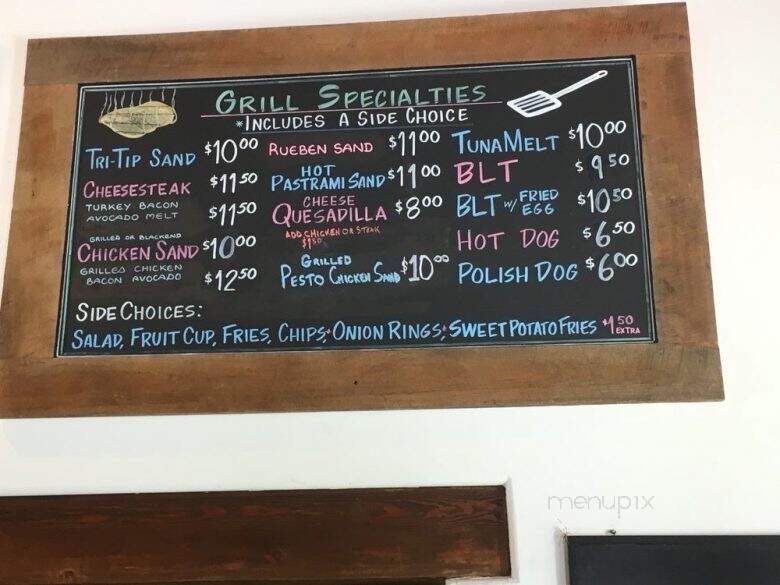 GRILL SPECIALTIES
*INCLUDES A SIDE CHOICE
TRI-TIP SAND $10.00
CHEESESTEAK $11.50
TURKEY BACON
AVOCADO MELT $11.50
GRILLED OR BLACKEND
CHICKEN SAND $10.00
GRILLED CHICKEN
BACON AVOCADO $12.50
RUEBEN SAND $11.00
HOT
PASTRAMI SAND $11.00
CHEESE
QUESADILLA $8.00
ADD CHICKEN OR STEAK
$1.50
GRILLED
PESTO CHICKEN SAND $10.00
TUNA MELT $10.00
BLT $9.50
BLT W/ FRIED EGG $10.50
HOT DOG $6.50
POLISH DOG $6.00
SIDE CHOICES:
SALAD, FRUIT CUP, FRIES, CHIPS,*ONION RINGS,*SWEET POTATO FRIES *1.50 EXTRA
menupix